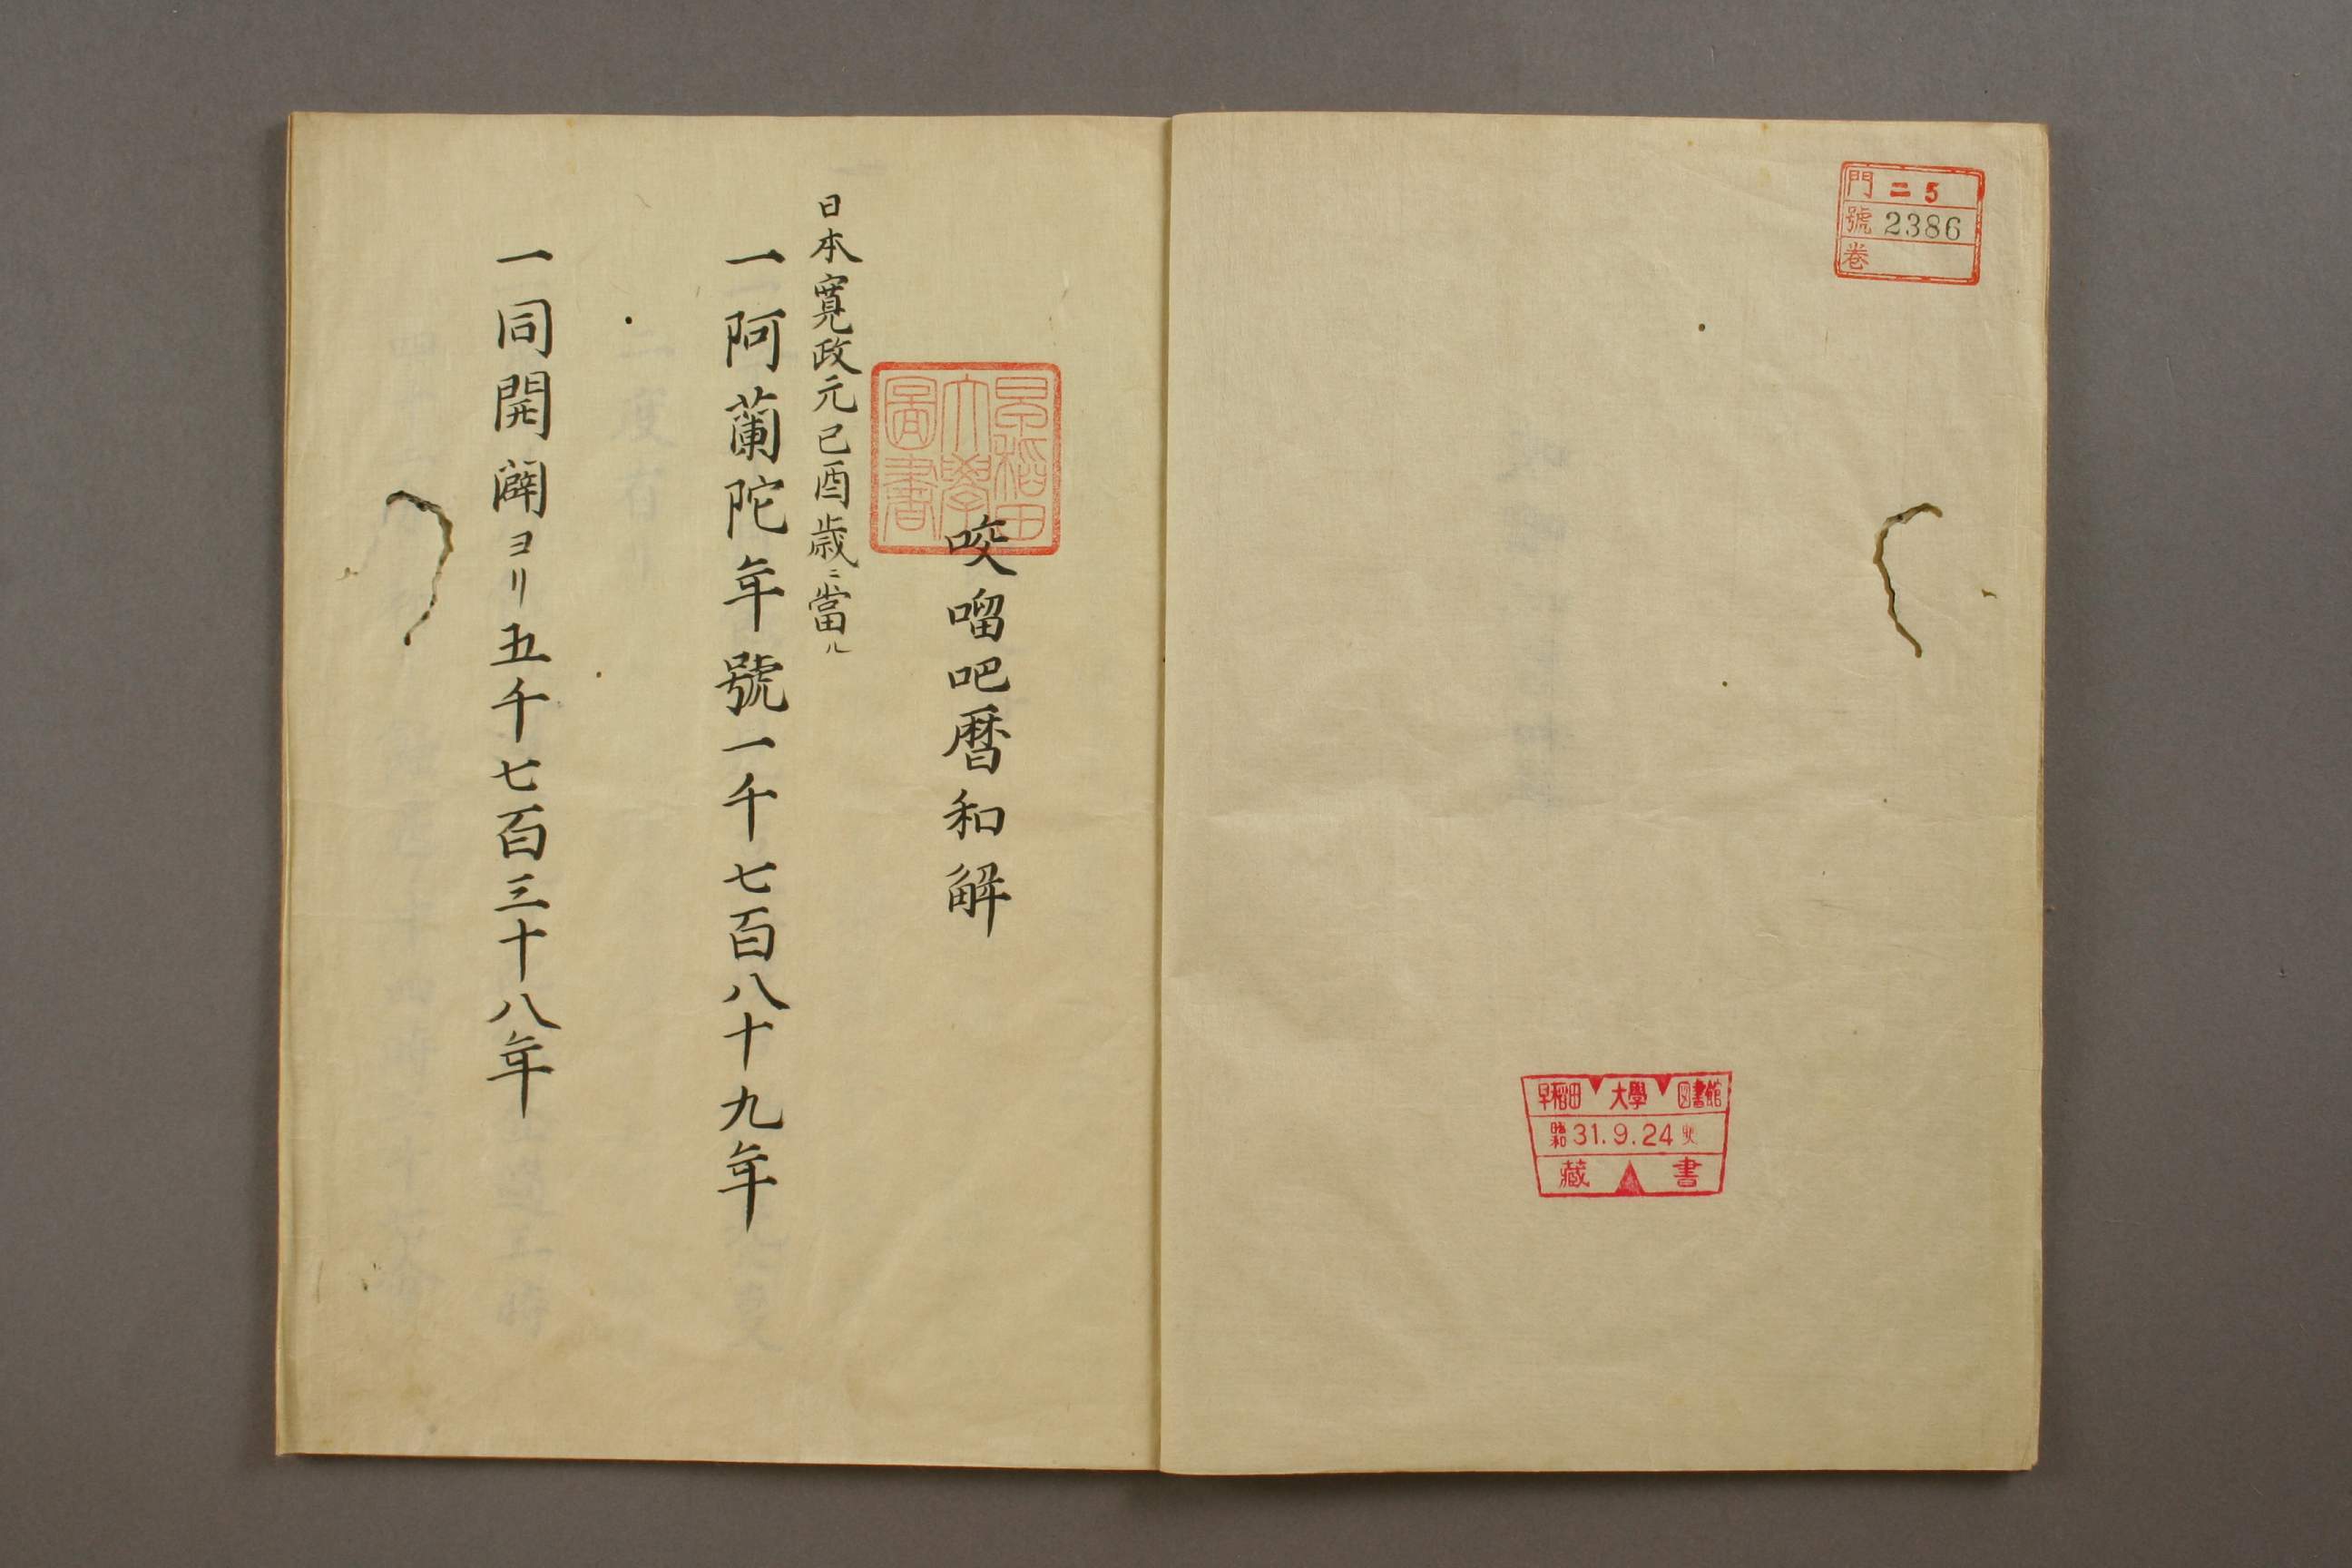 門 ニ 5
號 2386
巻
早稲田 大學 図書館
昭和 31.9.24
藏 書
早稲田
大學
圖書
咬𠺕吧暦和解
日本寛政元己酉歳ニ當ル
一阿蘭陀年號一千七百八十九年
一同開闢ヨリ五千七百三十八年